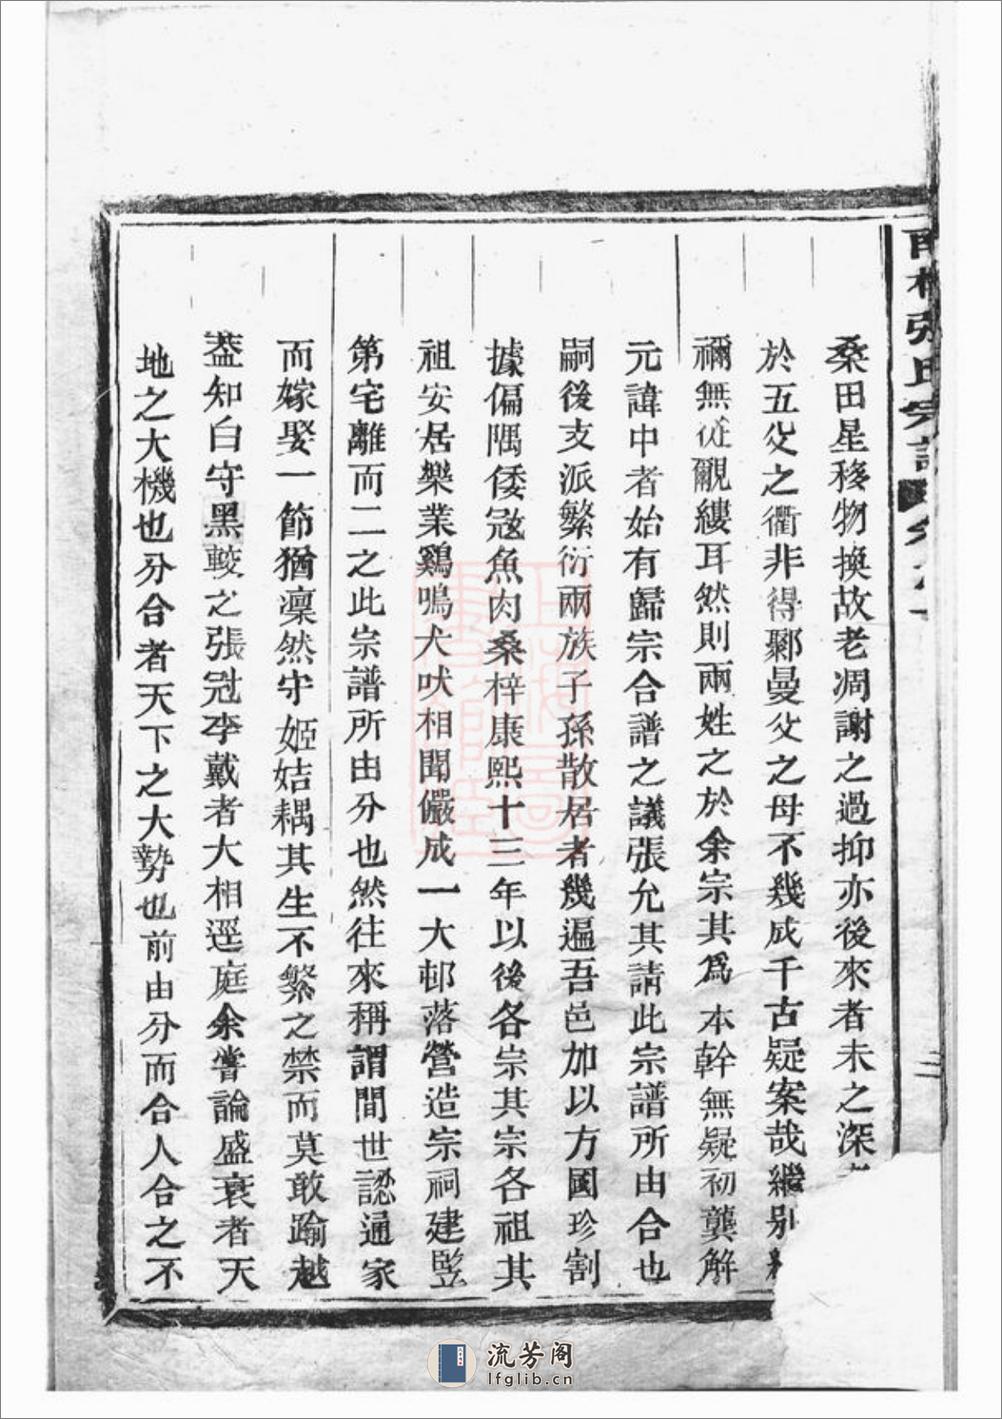 張氏宗譜
桑田星移物換故老凋謝之過抑亦後來者未之深
於五父之衢非得郰曼父之母不幾成千古疑案哉繼别
禰無從覼縷耳然則兩姓之於余宗其爲本幹無疑初龔解
元諱中者始有歸宗合譜之議張允其請此宗譜所由合也
嗣後支派繁衍兩族子孫散居者幾遍吾邑加以方國珍割
據偏隅倭冦魚肉桑梓康熙十三年以後各宗其宗各祖其
祖安居樂業鷄鳴犬吠相聞儼成一大邨落營造宗祠建竪
第宅離而二之此宗譜所由分也然往來稱謂間世認通家
而嫁娶一節猶凜然守姬姞耦其生不繁之禁而莫敢踰越
葢知白守黑較之張冠李戴者大相逕庭余嘗論盛衰者天
地之大機也分合者天下之大勢也前由分而合人合之不
流芳阁
lfglib.cn